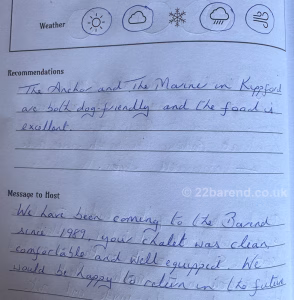 Weather
Recommendations
The Anchor and The Mariner in Kippford
are both dog friendly and the food is
excellent.
© 22barond.co.uk
Message to Host
We have been coming to the Barend
since 1989, your chalet was clean
comfortable and well equipped. We
would be happy to return in the future